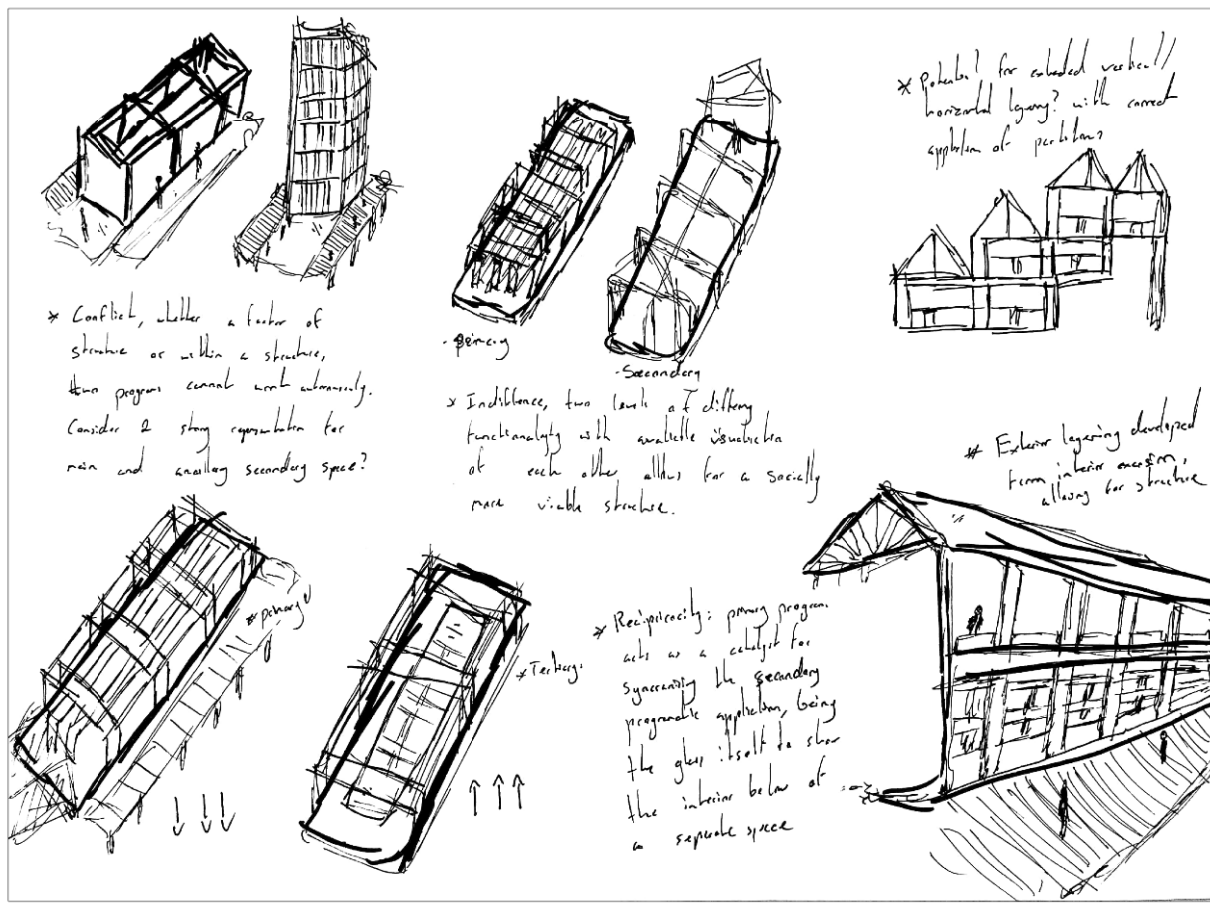 * Conflict, whether a factor of
structure or within a structure,
two programs cannot work autonomously.
Consider 2 strong representation for
main and ancillary secondary space?
- primary
- Secondary
* Indifference, two levels of differing
functionality with available visualisation
of each other allows for a socially
more viable structure.
* Potential for extended vertical/
horizontal layering? with correct
application of partitions
* Exterior layering developed
from interior
allowing for structure
* primary
* Tertiary
* Reciprocity: primary program
acts as a catalyst for
the secondary
programatic application, being
the glass itself to show
the interior below of
a separate space